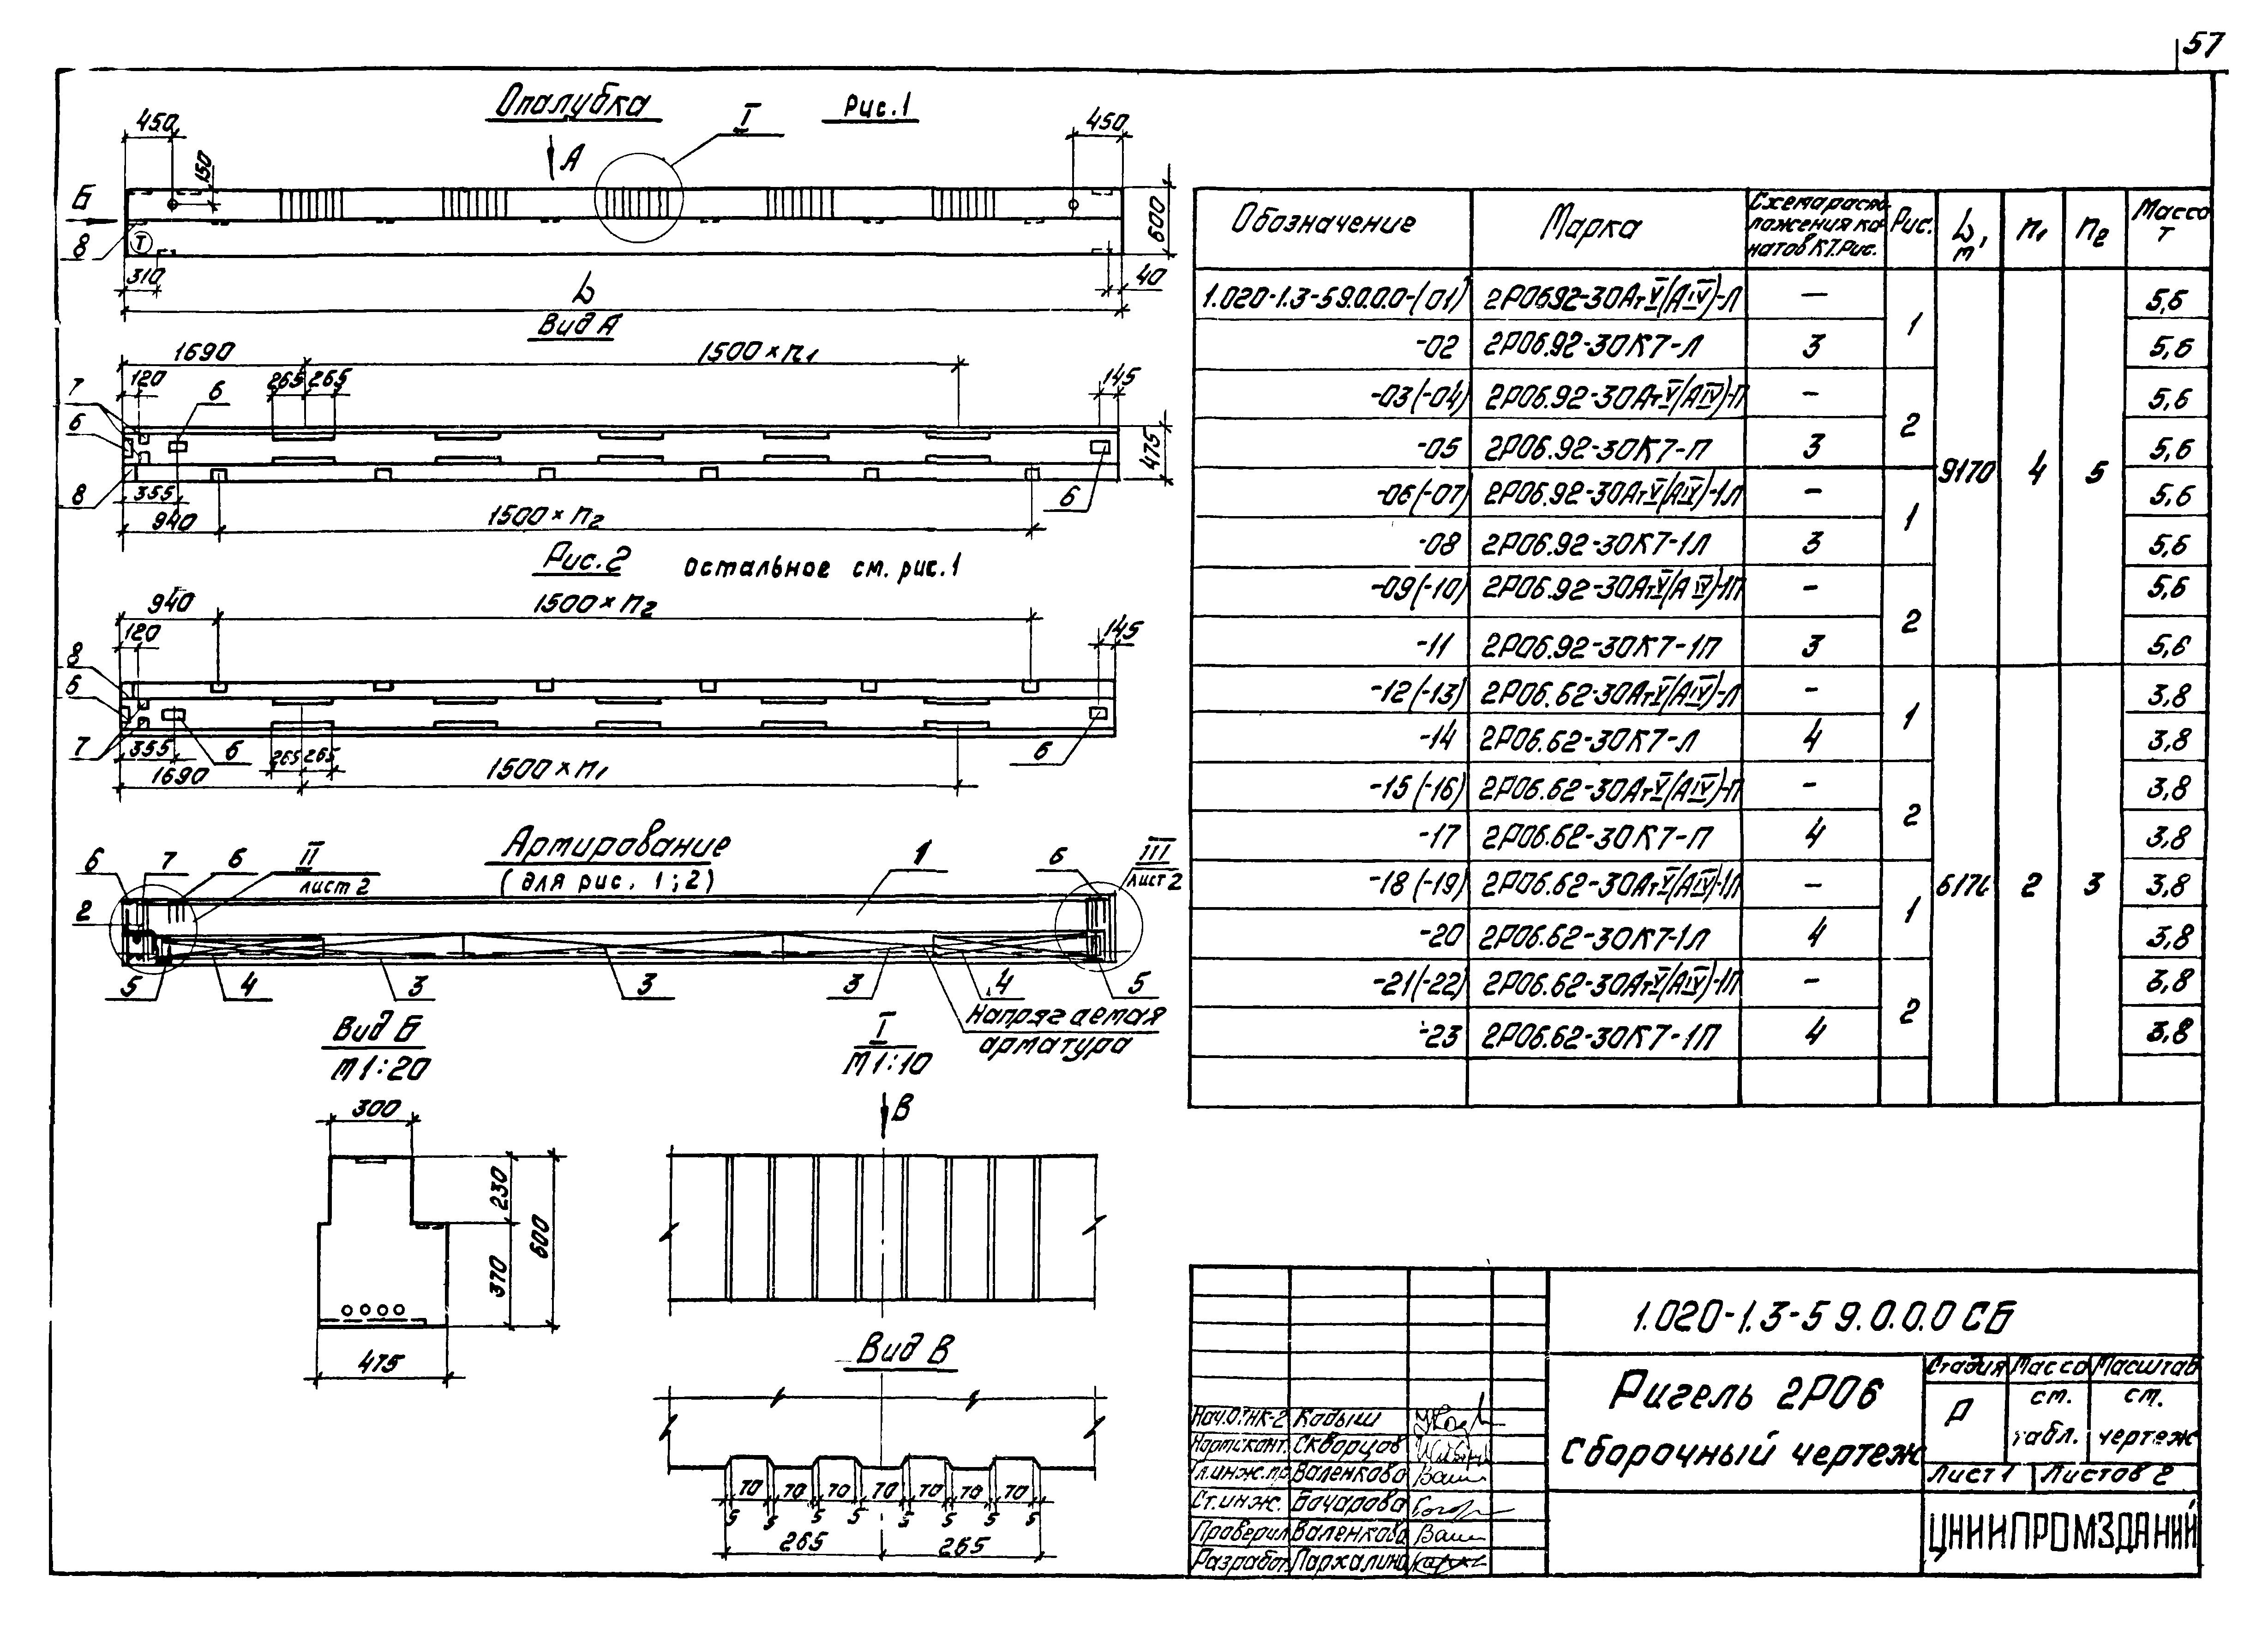 57
Опалубка
Рис.1
I
450
450
А
150
Б
8
Т
600
310
40
L
Вид А
1690
1500×n1
7
120
265
265
6
145
6
475
8
355
6
940
1500×n2
Рис.2
остальное см. рис.1
940
1500×n2
120
145
8
6
7
355
6
265
265
6
1690
1500×n1
Армирование
(для рис. 1;2)
6
7
6
II
лист 2
1
6
III
лист 2
2
5
4
3
3
3
4
5
Напрягаемая
арматура
Вид Б
М 1:20
I
М 1:10
300
В
230
600
370
475
Вид В
70 70 70 70 70 70 70
5 5 5 5 5 5 5 5
265
265
Обозначение Марка Схема распо-ложения ка-натов К7.Рис. Рис. L, м n1 n2 Масса т
1.020-1.3-5 9.0.0.0-(01) 2Р06.92-30АтV(АIV)-Л — 1 9170 4 5 5,6
-02 2Р06.92-30К7-Л 3 5,6
-03(-04) 2Р06.92-30АтV(АIV)-П — 2 5,6
-05 2Р06.92-30К7-П 3 5,6
-06(-07) 2Р06.92-30АтV(АIV)-1Л — 1 5,6
-08 2Р06.92-30К7-1Л 3 5,6
-09(-10) 2Р06.92-30АтV(АIV)-1П — 2 5,6
-11 2Р06.92-30К7-1П 3 5,6
-12(-13) 2Р06.62-30АтV(АIV)-Л — 1 2 3 3,8
-14 2Р06.62-30К7-Л 4 3,8
-15(-16) 2Р06.62-30АтV(АIV)-П — 2 3,8
-17 2Р06.62-30К7-П 4 3,8
-18(-19) 2Р06.62-30АтV(АIV)-1Л — 1 3,8
-20 2Р06.62-30К7-1Л 4 3,8
-21(-22) 2Р06.62-30АтV(АIV)-1П — 2 3,8
-23 2Р06.62-30К7-1П 4 3,8
1.020-1.3-5 9.0.0.0 СБ
Ригель 2Р06
сборочный чертеж
Стадия Масса Масштаб
Р см. табл. см. чертеж
Лист 1 Листов 2
ЦНИИПРОМЗДАНИЙ
Нач.ОТНК-2 Кодыш
Нормконт. Скворцов
Гл.инж.пр Валенкова
Ст.инж. Бочарова
Проверил Валенкова
Разработ. Пархалина